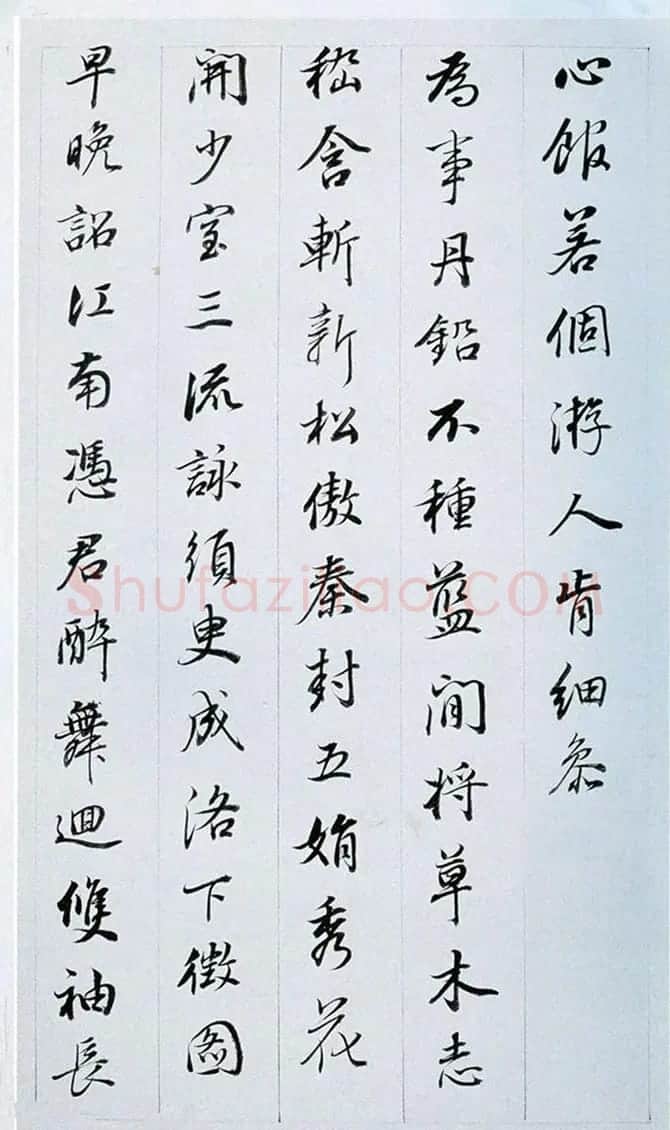 心館若個游人肯细叅
為事丹鉛不種藍間将草木志
嵇含斬新松傲秦封五娟秀花
開少室三流詠須臾成洛下徵圖
早晚詔江南憑君醉舞迴雙袖長
Shufaziliao.COM